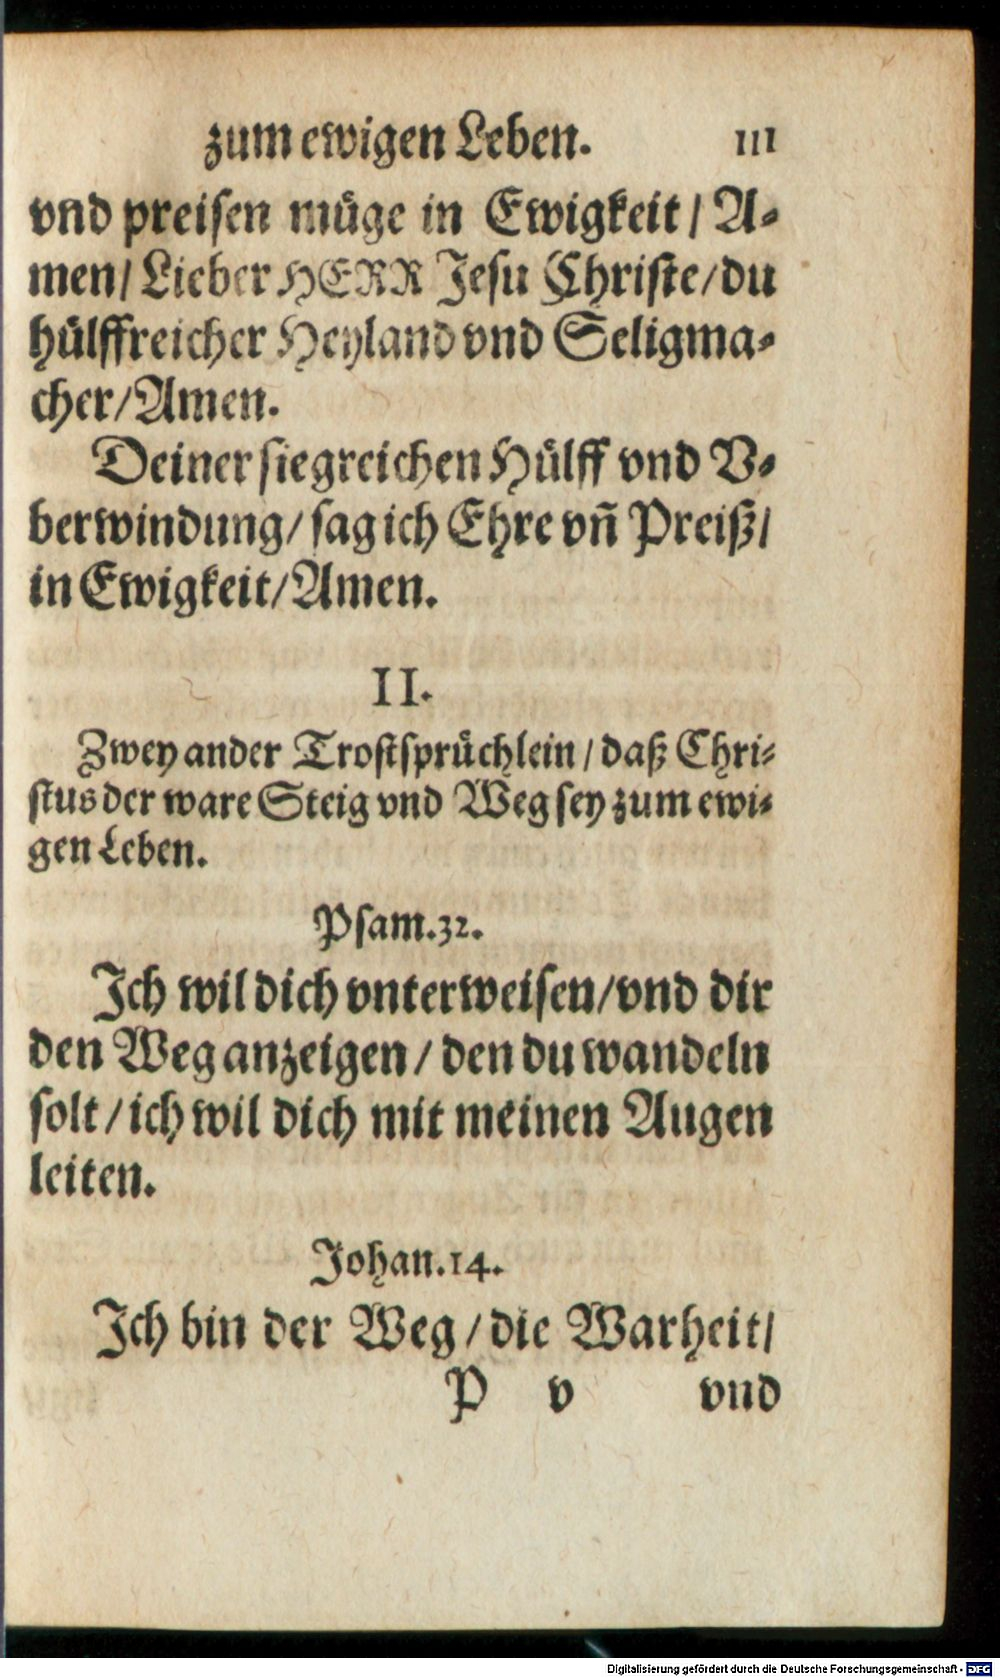 zum ewigen Leben. 111
vnd preisen müge in Ewigkeit / A-
men / Lieber HERR Jesu Christe / du
hülffreicher Heyland vnd Seligma-
cher / Amen.
Deiner siegreichen Hülff vnd V-
berwindung / sag ich Ehre vñ Preiß /
in Ewigkeit / Amen.
II.
Zwey ander Trostsprüchlein / daß Chri-
stus der ware Steig vnd Weg sey zum ewi-
gen Leben.
Psam. 32.
Ich wil dich vnterweisen / vnd dir
den Weg anzeigen / den du wandeln
solt / ich wil dich mit meinen Augen
leiten.
Johan. 14.
Ich bin der Weg / die Warheit /
P v vnd
Digitalisierung gefördert durch die Deutsche Forschungsgemeinschaft - DFG